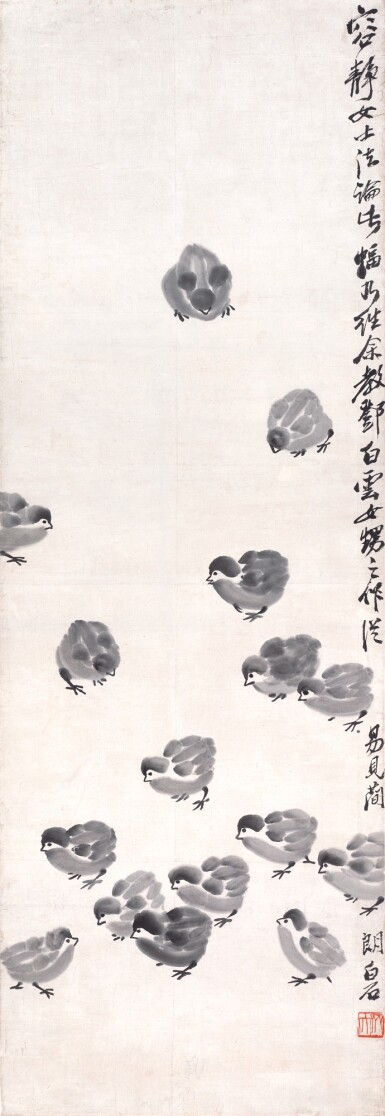 容靜女士法論此幅乃經余教鄧白雲女甥之作從
易見蕳
朗白石